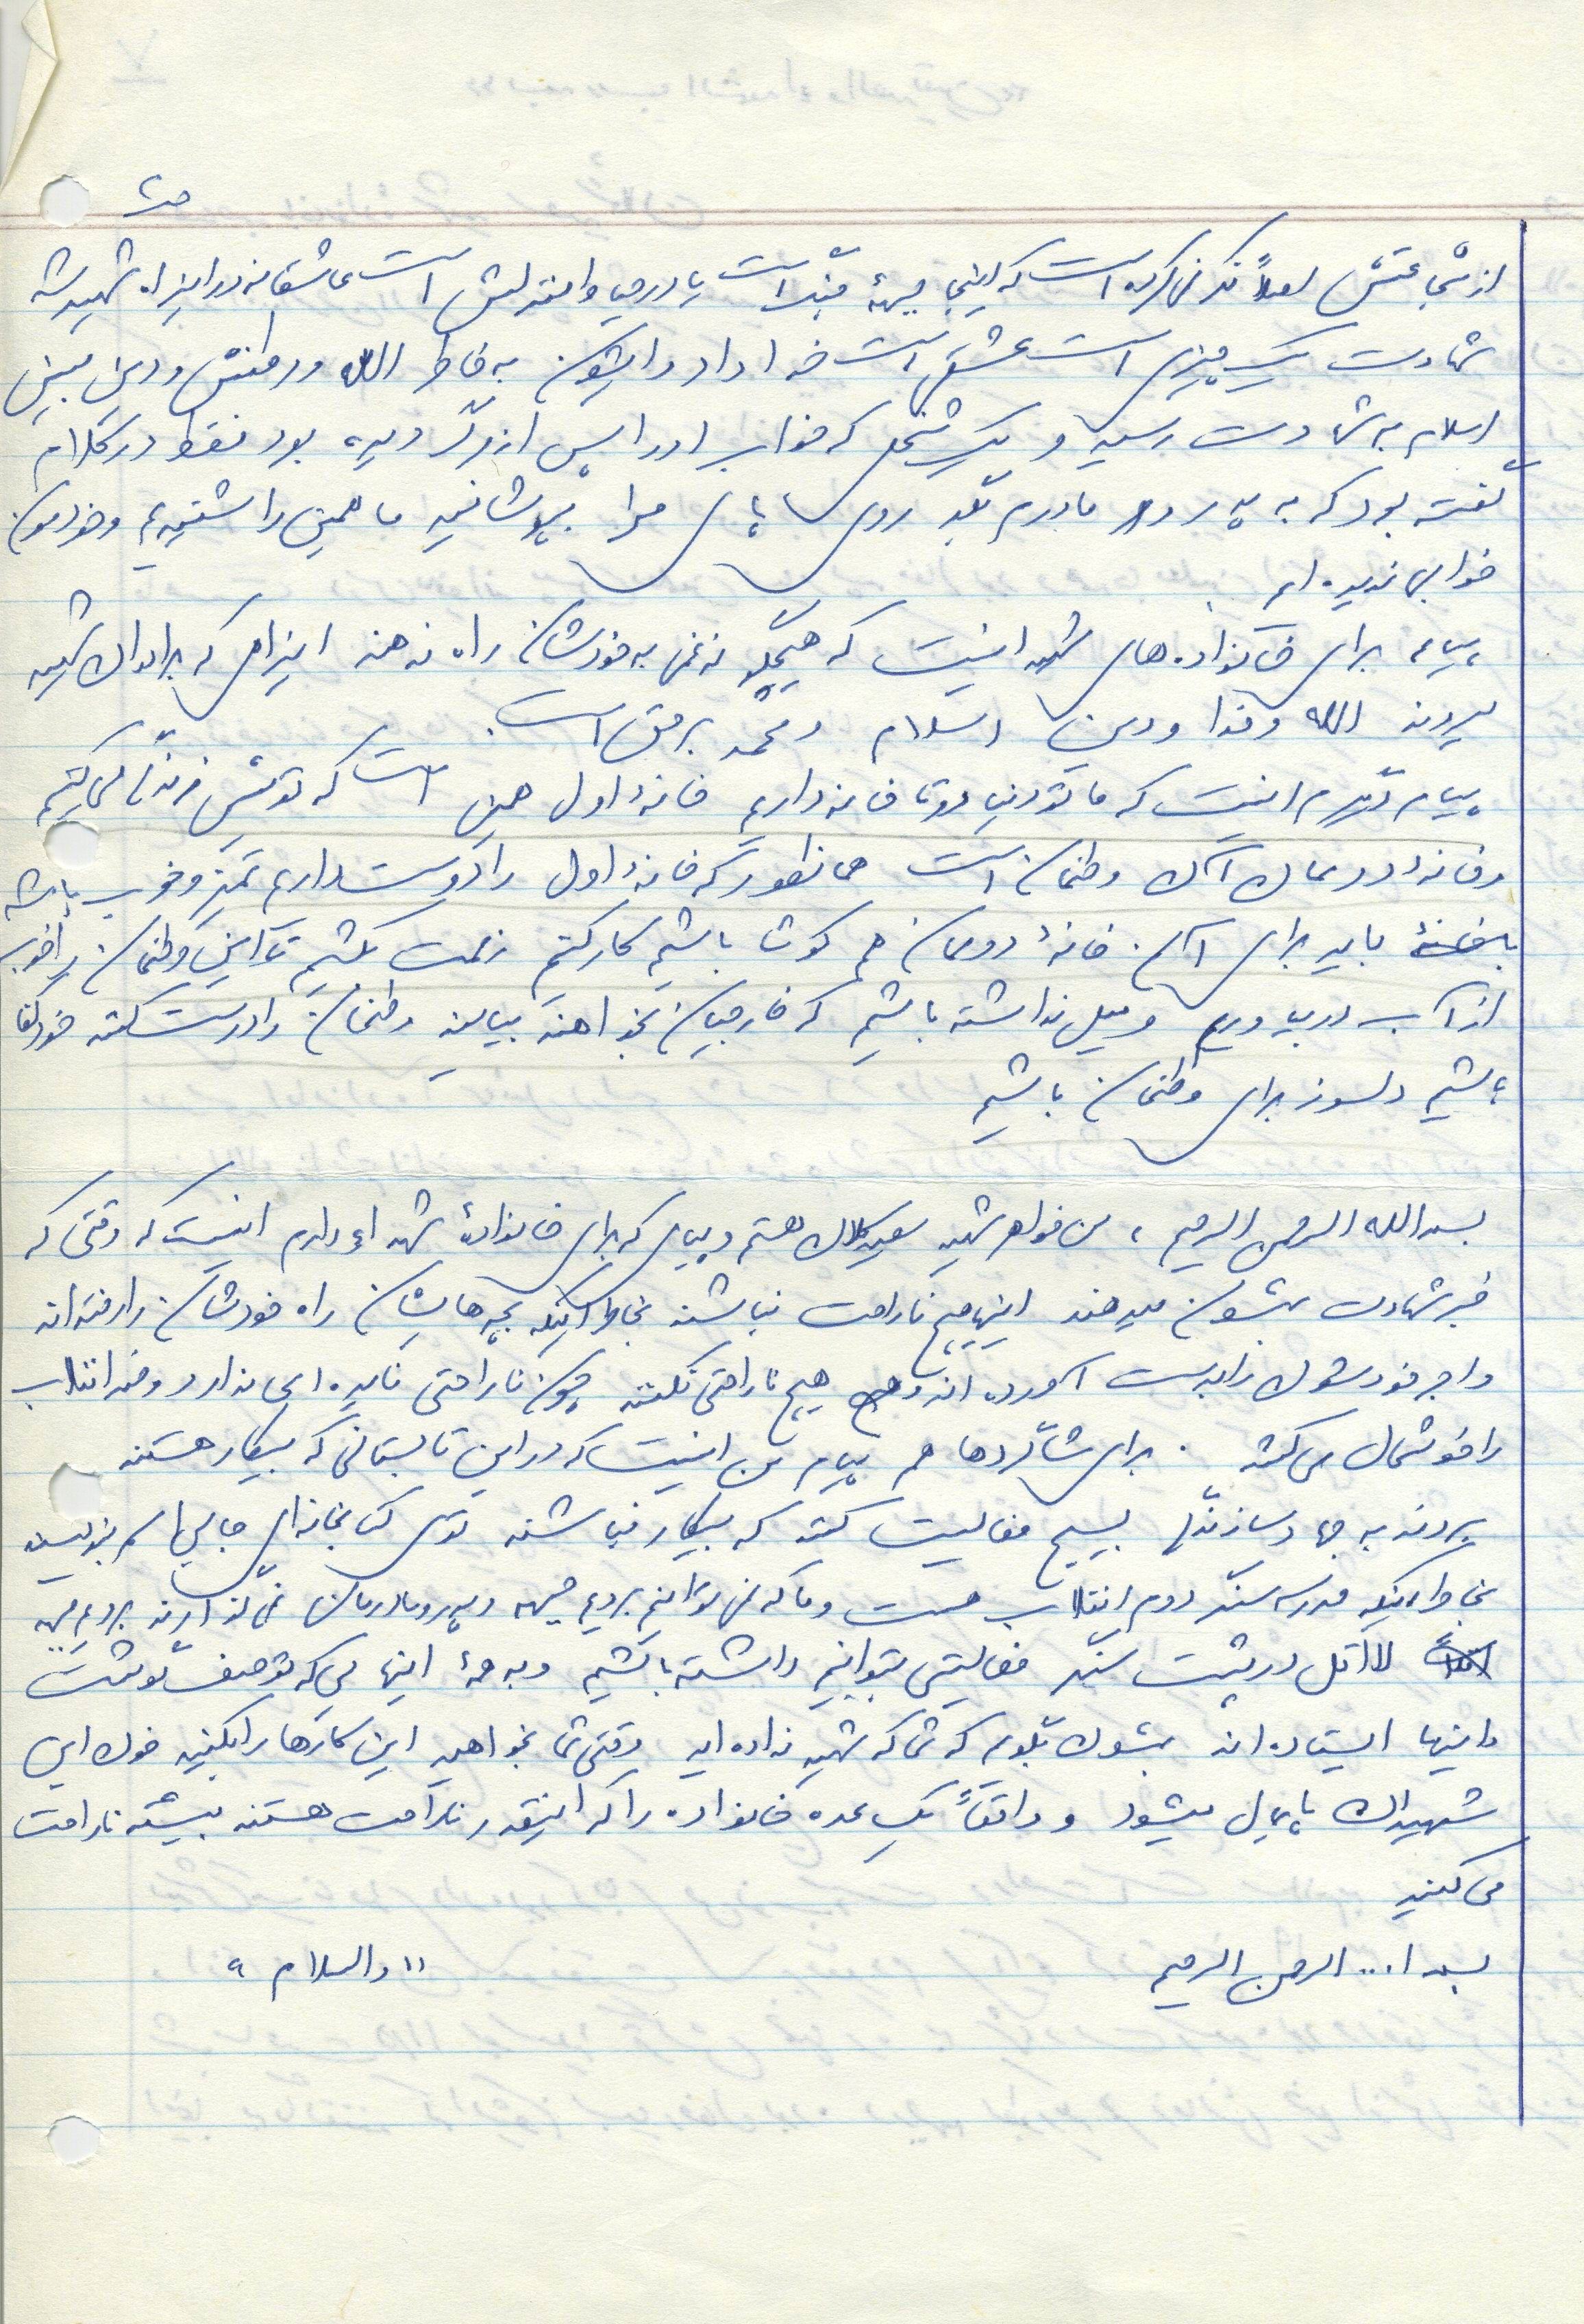 ص۲
از شجاعتش اصلاً فکر نمی‌کرده است که اینجا جبههٔ جنگ است یا دریا و اینقدر است عاشقانه در این راه شهید شد
شهادت یک چیزی است عشقی است خدا داد و ایشون به خاطر الله و وطنش و دین مبین
اسلام به شهادت رسید و یک شخصی که خواب او را پس از مرگ دیده بود فقط در کلام
گفته بود که به پدر و مادرم بگید روی پاهای مرا بپوشانید ما همین را شنیدیم و خودمون
خوابی ندیده‌ایم
پیام برای خانواده‌های شهدا اینست که هیچگونه غمی به خودشان راه ندهند این راهی که برادران شهید
میروند الله و خدا و دین اسلام و محمد بر حق است.
پیام دیگرم اینست که ما تو دنیا دوتا خانه داریم خانهٔ اول همین است که توش زندگی می‌کنیم
و خانهٔ دومان آن وطنمان است همانطور که خانهٔ اول را دوست داریم تمیز و خوب باشد
باید برای آن خانهٔ دومان هم کوشا باشیم کار کنیم زحمت بکشیم تا این وطنمان را خوب
از آب در بیاوریم و میل نداشته باشیم که خارجیان بخواهند بیایند وطنمان را درست کنند خودکفا
باشیم دلسوز برای وطنمان باشیم
بسم الله الرحمن الرحیم ، من خواهر شهید سعید کلال هستم و پیامی که برای خانوادهٔ شهداء دارم اینست که وقتی که
خبر شهادت بهشون میدهند اینها هیچ ناراحت نباشند بخاطر اینکه بچه‌هایشان راه خودشان را رفته‌اند
و اجر خودشون را بدست آورده‌اند و هیچ ناراحتی نکنند چون ناراحتی فایده‌ای ندارد و ضد انقلاب
را خوشحال می‌کنند . برای شاگردها هم پیام من اینست که در این تابستانی که بیکار هستند
بروند به جهاد سازندگی بسیج فعالیت کنند که بیکار نباشند توی کتابخانه‌ای جایی اسم بنویسند
بخاطر اینکه مدرسه سنگر دوم انقلاب هست و ما که نمی‌توانیم برویم جبهه و پدر و مادرمان نمی‌گذارند برویم جبهه
لااقل در پشت سنگر فعالیتی بتوانیم داشته باشیم و به همهٔ اینهایی که تو صف گوشت
و اینها ایستاده‌اند بهشون بگویم که شما که شهید نداده‌اید وقتی شما بخواهید این کارها را بکنید خون این
شهیدان پایمال میشود و واقعاً یک عده خانواده را که اینقدر ناراحت هستند بیشتر ناراحت
می‌کنید
بسم ا... الرحمن الرحیم "والسلام"